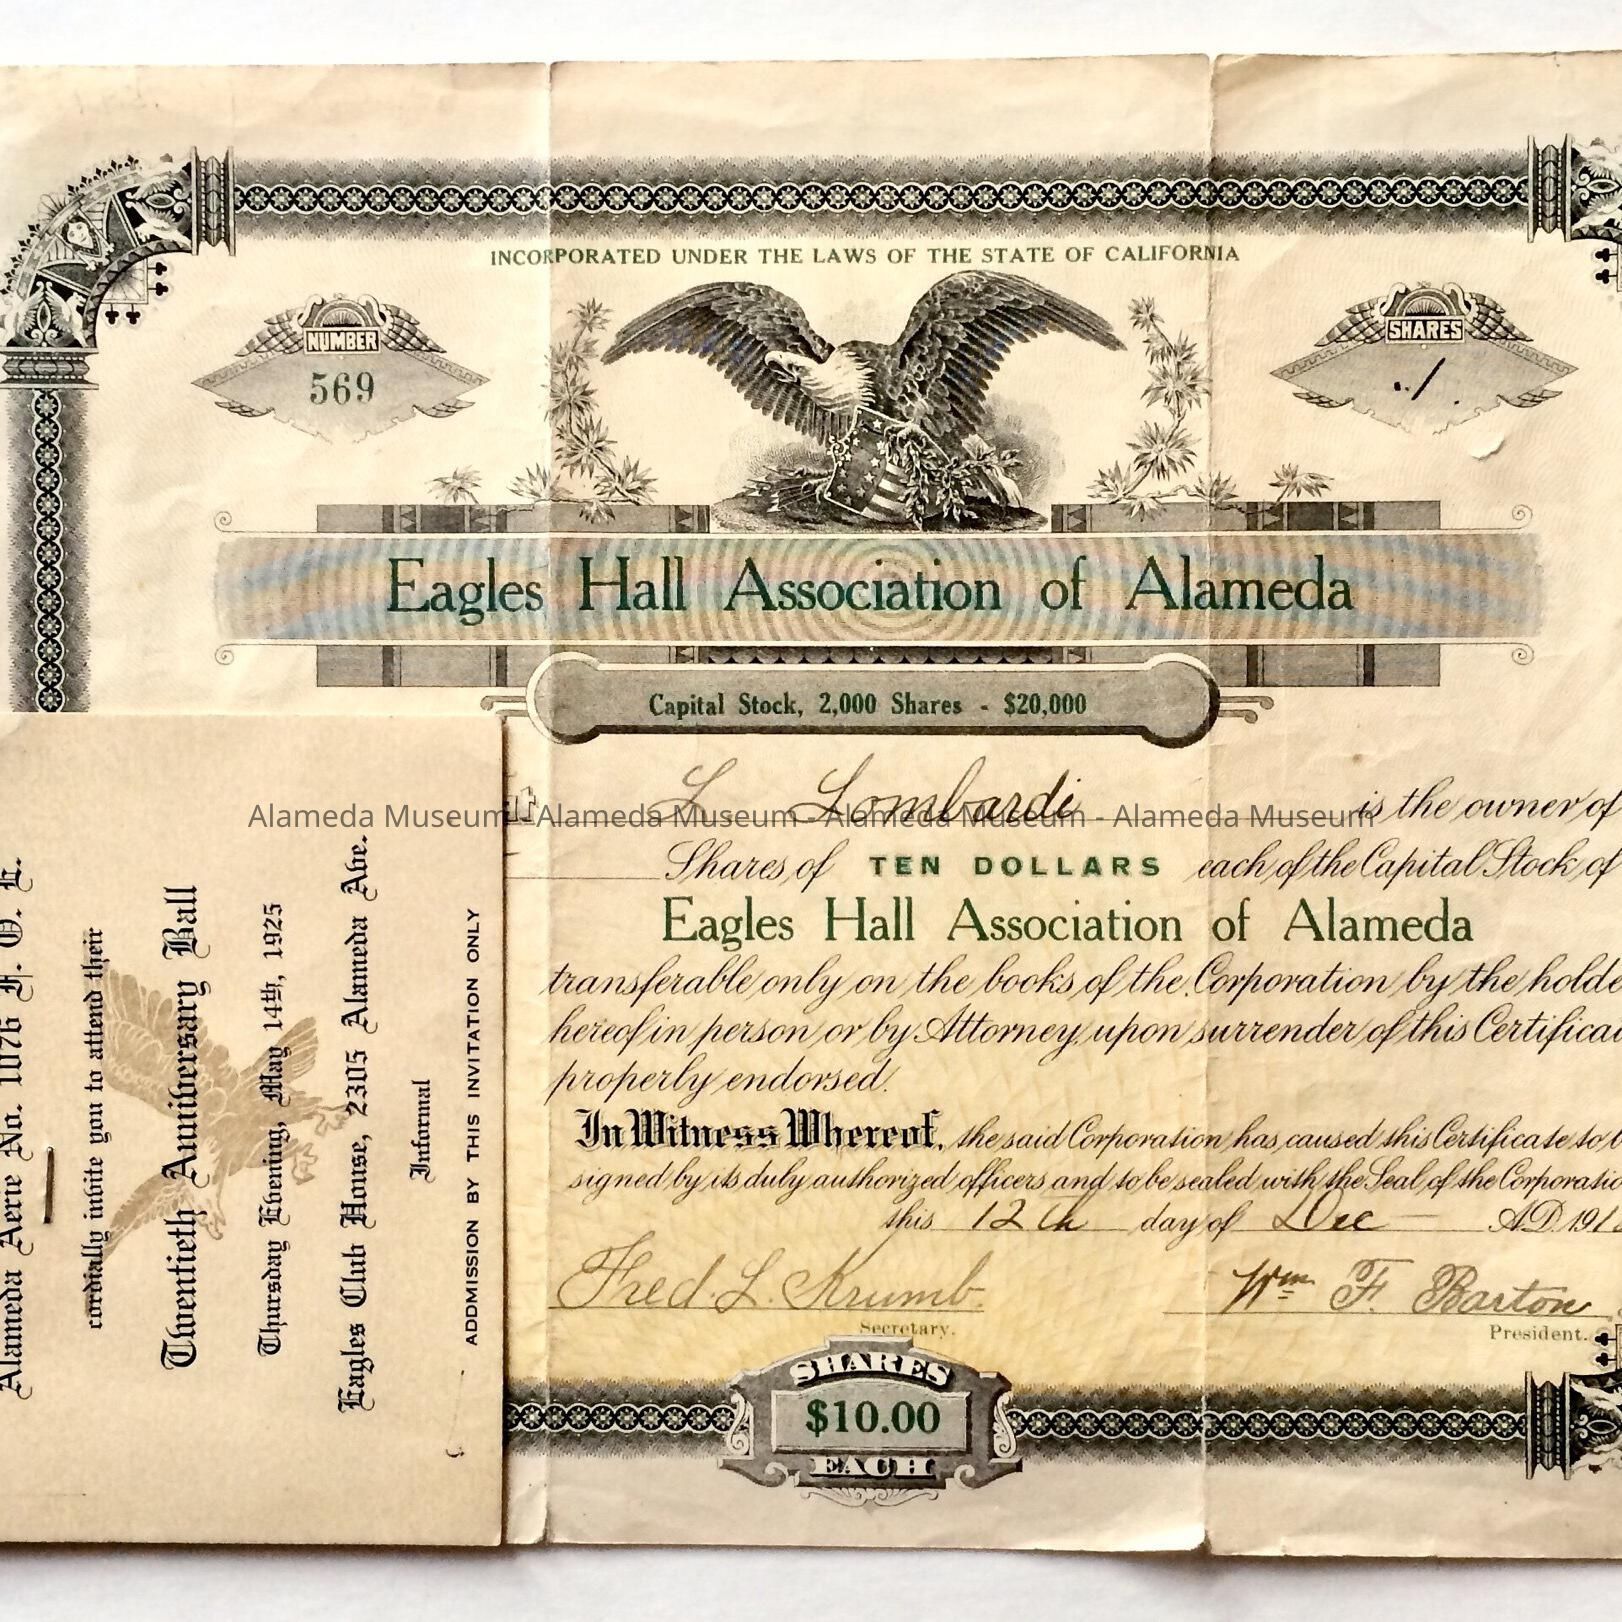 INCORPORATED UNDER THE LAWS OF THE STATE OF CALIFORNIA
NUMBER
569
SHARES
1
Eagles Hall Association of Alameda
Capital Stock, 2,000 Shares - $20,000
L. Lombardi is the owner of
Shares of TEN DOLLARS each of the Capital Stock of
Eagles Hall Association of Alameda
transferable only on the books of the Corporation by the holde
hereof in person or by Attorney upon surrender of this Certificat
properly endorsed.
In Witness Whereof, the said Corporation has caused this Certificate to b
signed by its duly authorized officers and to be sealed with the Seal of the Corporatio
this 12th day of Dec A.D. 191
Fred. L. Krumb.
Secretary.
Wm F. Barton
President.
SHARES
$10.00
EACH
Alameda Aerie No. 1076 F. O. E.
cordially invite you to attend their
Twentieth Anniversary Ball
Thursday Evening, May 14th, 1925
Eagles Club House, 2305 Alameda Ave.
Informal
ADMISSION BY THIS INVITATION ONLY
Alameda Museum - Alameda Museum - Alameda Museum - Alameda Museum